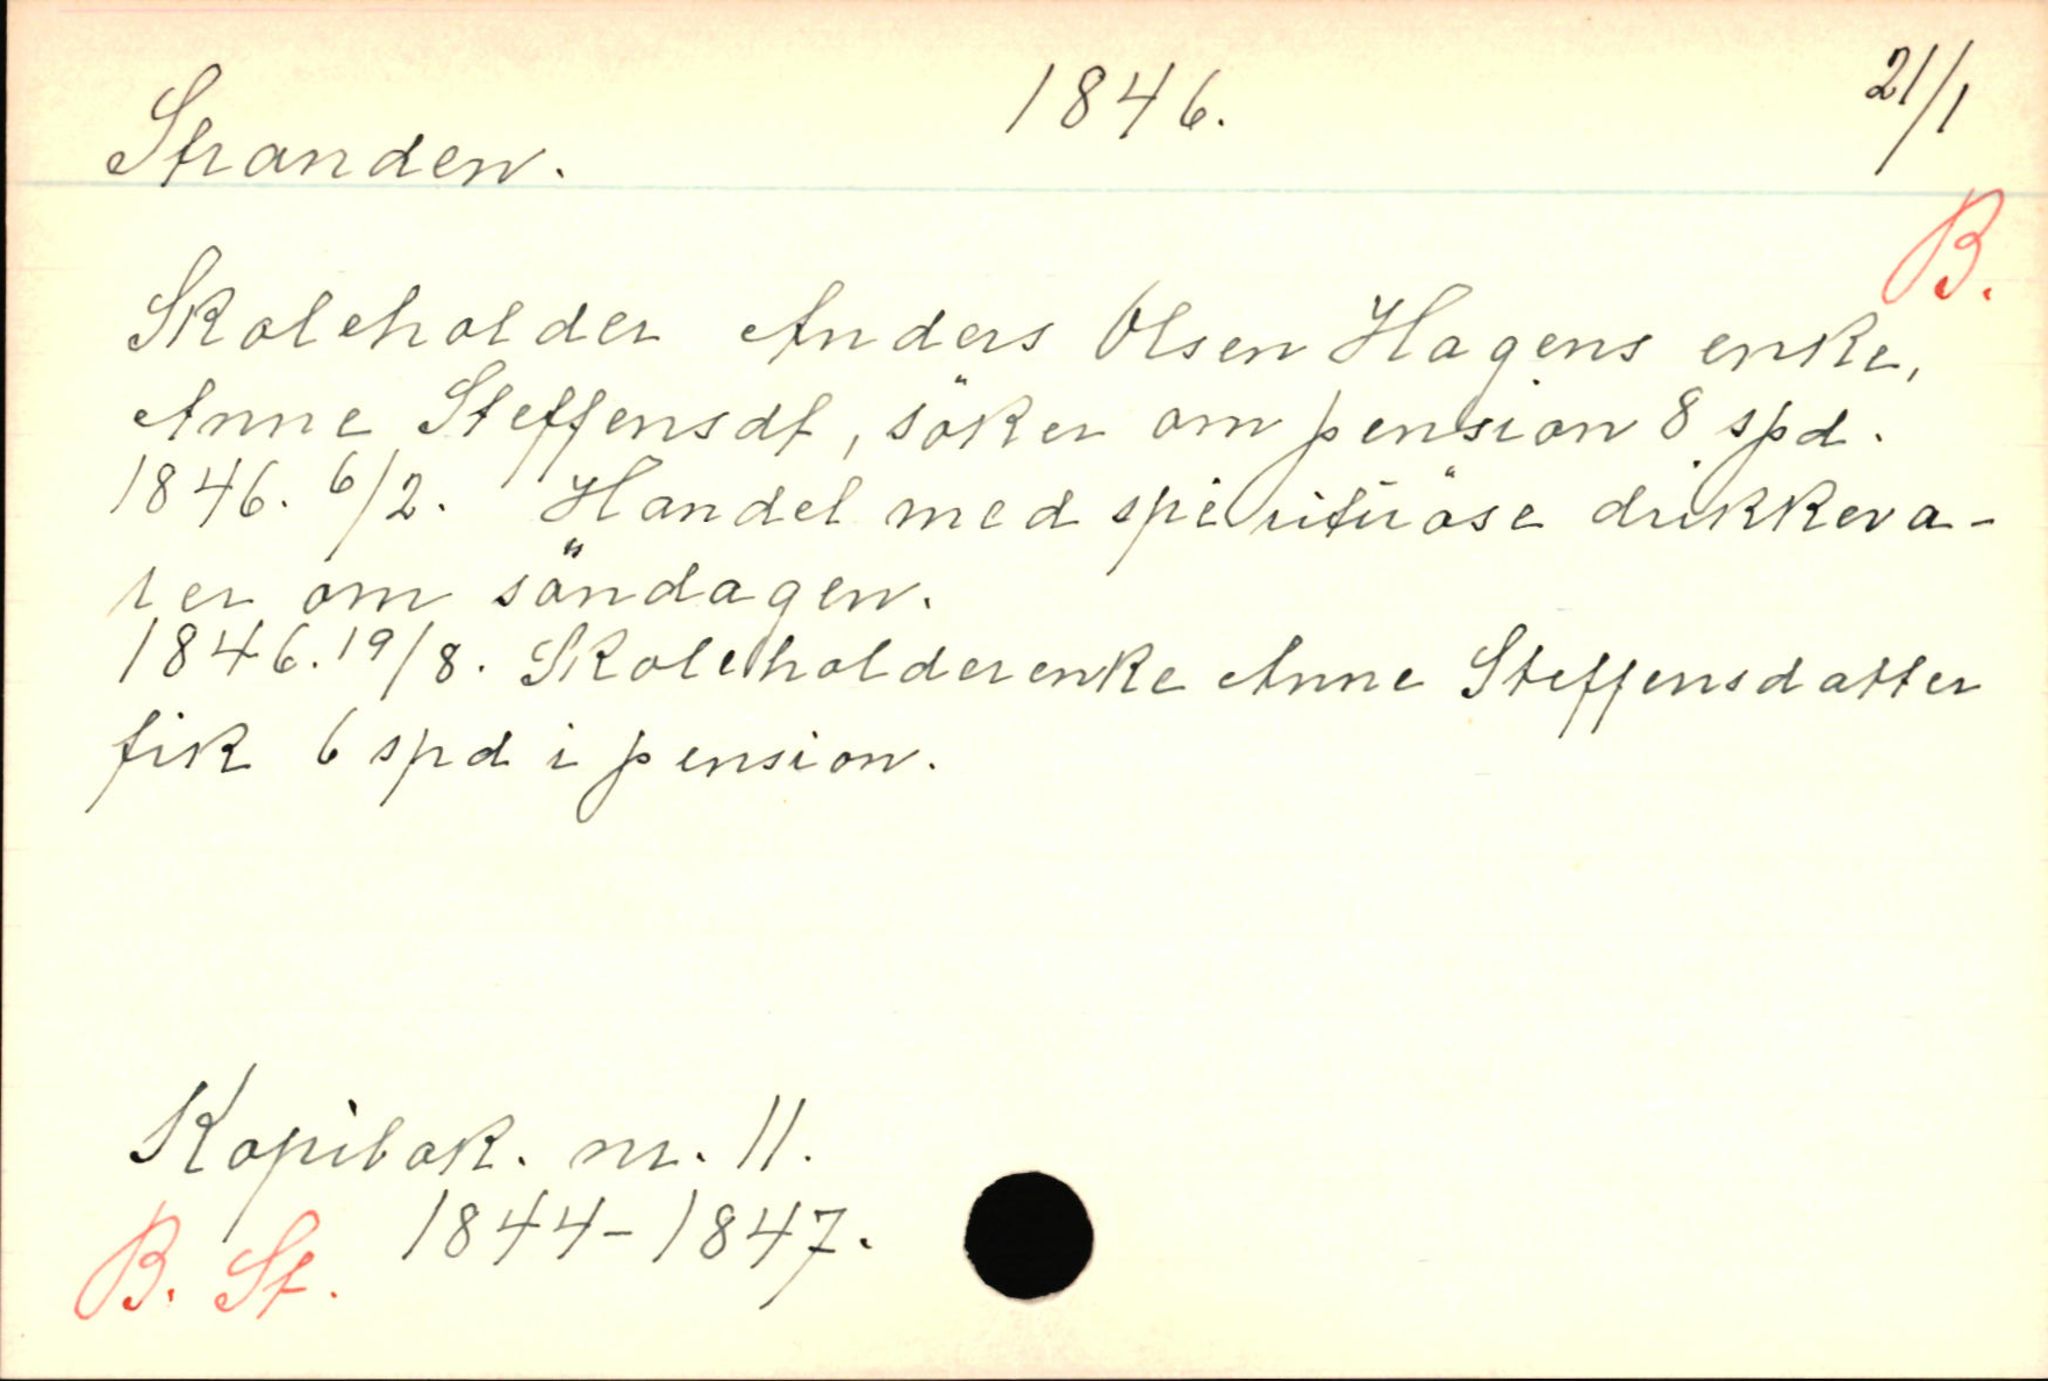 Stranden. 1846. 21/1
B.
Skoleholder Anders Olsen Hagens enke,
Anne Steffensdt, söker om pension 8 spd.
1846. 6/2. Handel med spirituöse drikkeva-
rer om söndagen.
1846. 19/8. Skoleholderenke Anne Steffensdatter
fik 6 spd i pension.
Kopibok. nr. 11.
1844-1847.
B. St.